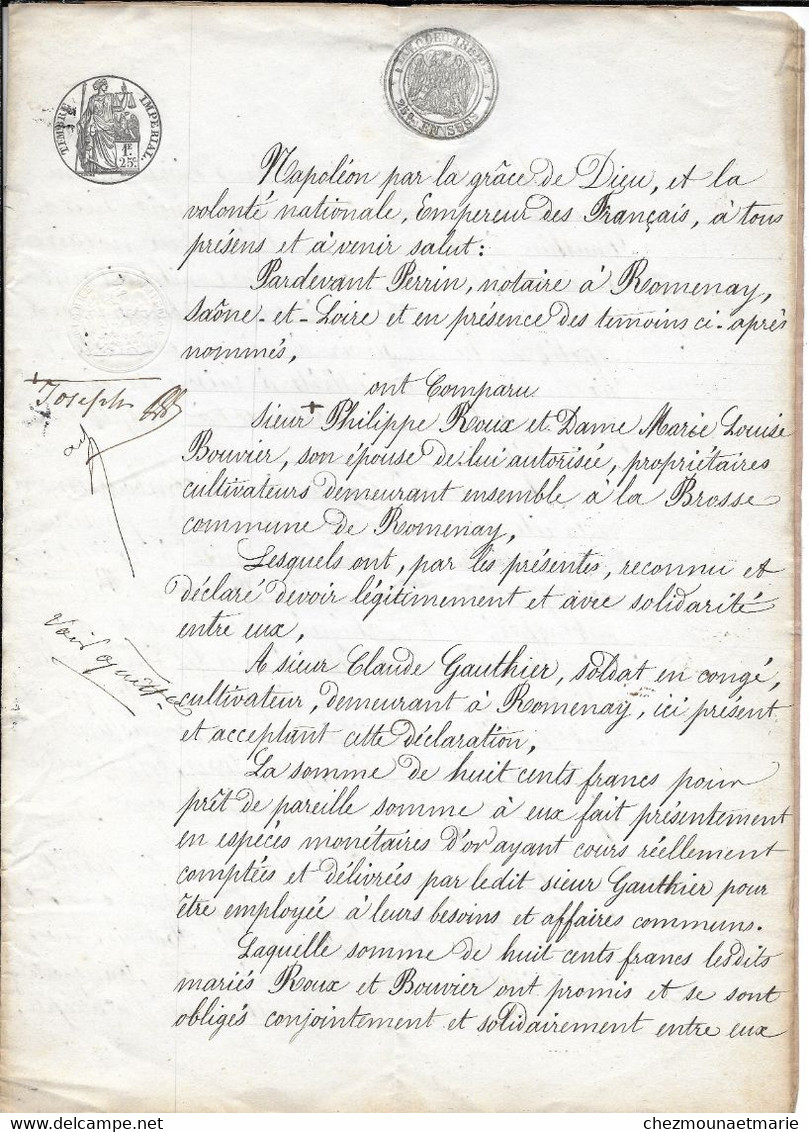 TIMBRE IMPERIAL.
1F.
25c.
Napoléon par la grâce de Dieu, et la
volonté nationale, Empereur des Français, à tous
présens et à venir salut:
Pardevant Perrin, notaire à Romenay,
Saône-et-Loire et en présence des temoins ci-après
nommés,
ont Comparu
+ Joseph
sieur + Philippe Roux et Dame Marie Louise
Bouvier, son épouse de lui autorisée, propriétaires
cultivateurs demeurant ensemble à la Brosse
commune de Romenay,
Lesquels ont, par les présentes, reconnu et
déclaré devoir légitimement et avec solidarité
entre eux,
A sieur Claude Gauthier, soldat en congé,
cultivateur, demeurant à Romenay, ici présent
et acceptant cette déclaration,
La somme de huit cents francs pour
prêt de pareille somme à eux fait présentement
en espécés monétaires d'or ayant cours réellement
comptées et délivrées par ledit sieur Gauthier pour
être employée à leurs besoins et affaires communs.
Laquelle somme de huit cents francs lesdits
mariés Roux et Bouvier ont promis et se sont
obligés conjointement et solidairement entre eux
chezmounaetmarie